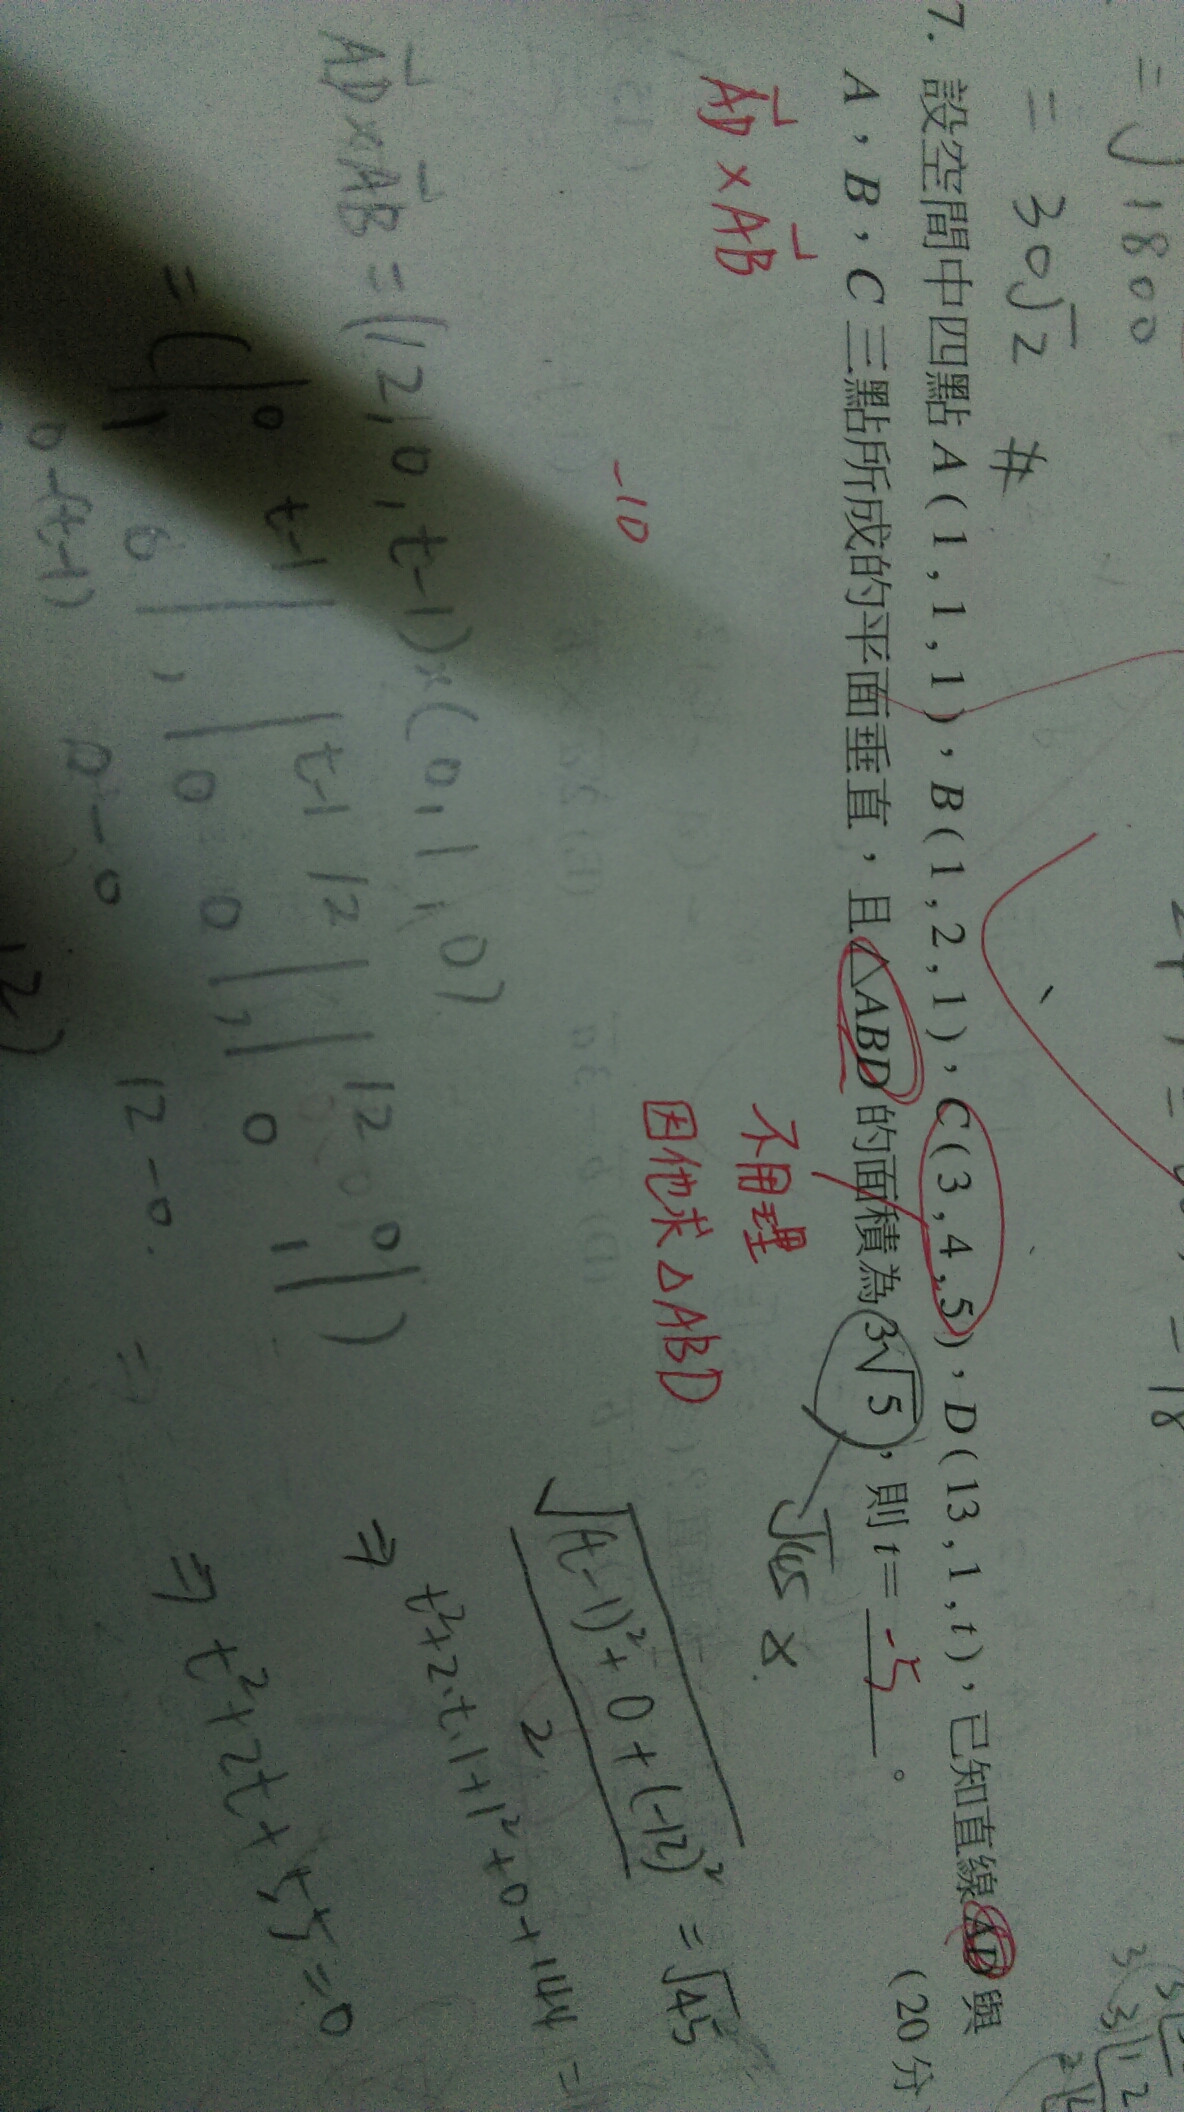 = √1800
= 30√2 #
7. 設空間中四點 A(1,1,1),B(1,2,1),C(3,4,5),D(13,1,t),已知直線 AD 與
A,B,C 三點所成的平面垂直,且△ABD 的面積為 3√5,則 t= -5 。 (20分
AD × AB
不用理
因他求△ABD
√45
-10
AD×AB = (12, 0, t-1)×(0, 1, 0)
= (| 0 t-1 | , | t-1 12 | , | 12 0 |)
1 0 0 0 0 1
0-(t-1) 0-0 12-0
√(t-1)²+0+(-12)² / 2 = √45
⇒ t²+2.t.1+1²+0+144 =
⇒ t²+2t+ =0